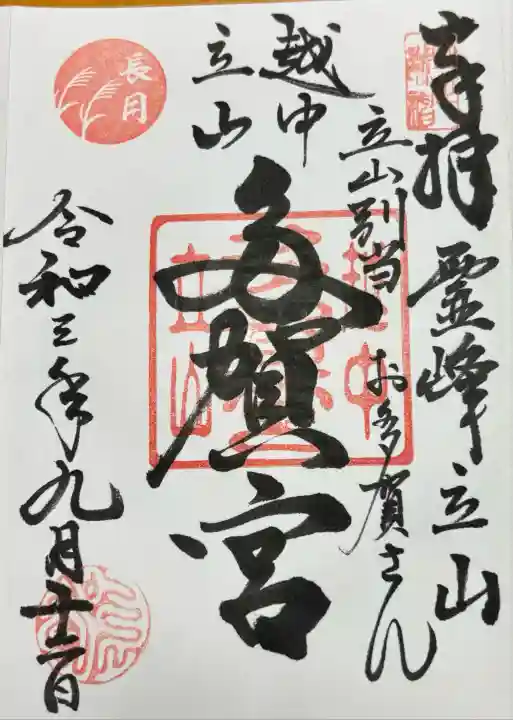 奉拝
霊峰立山
立山別当
お多賀さん
越中
立山
多賀宮
長月
令和三年九月十二日
越中
立山